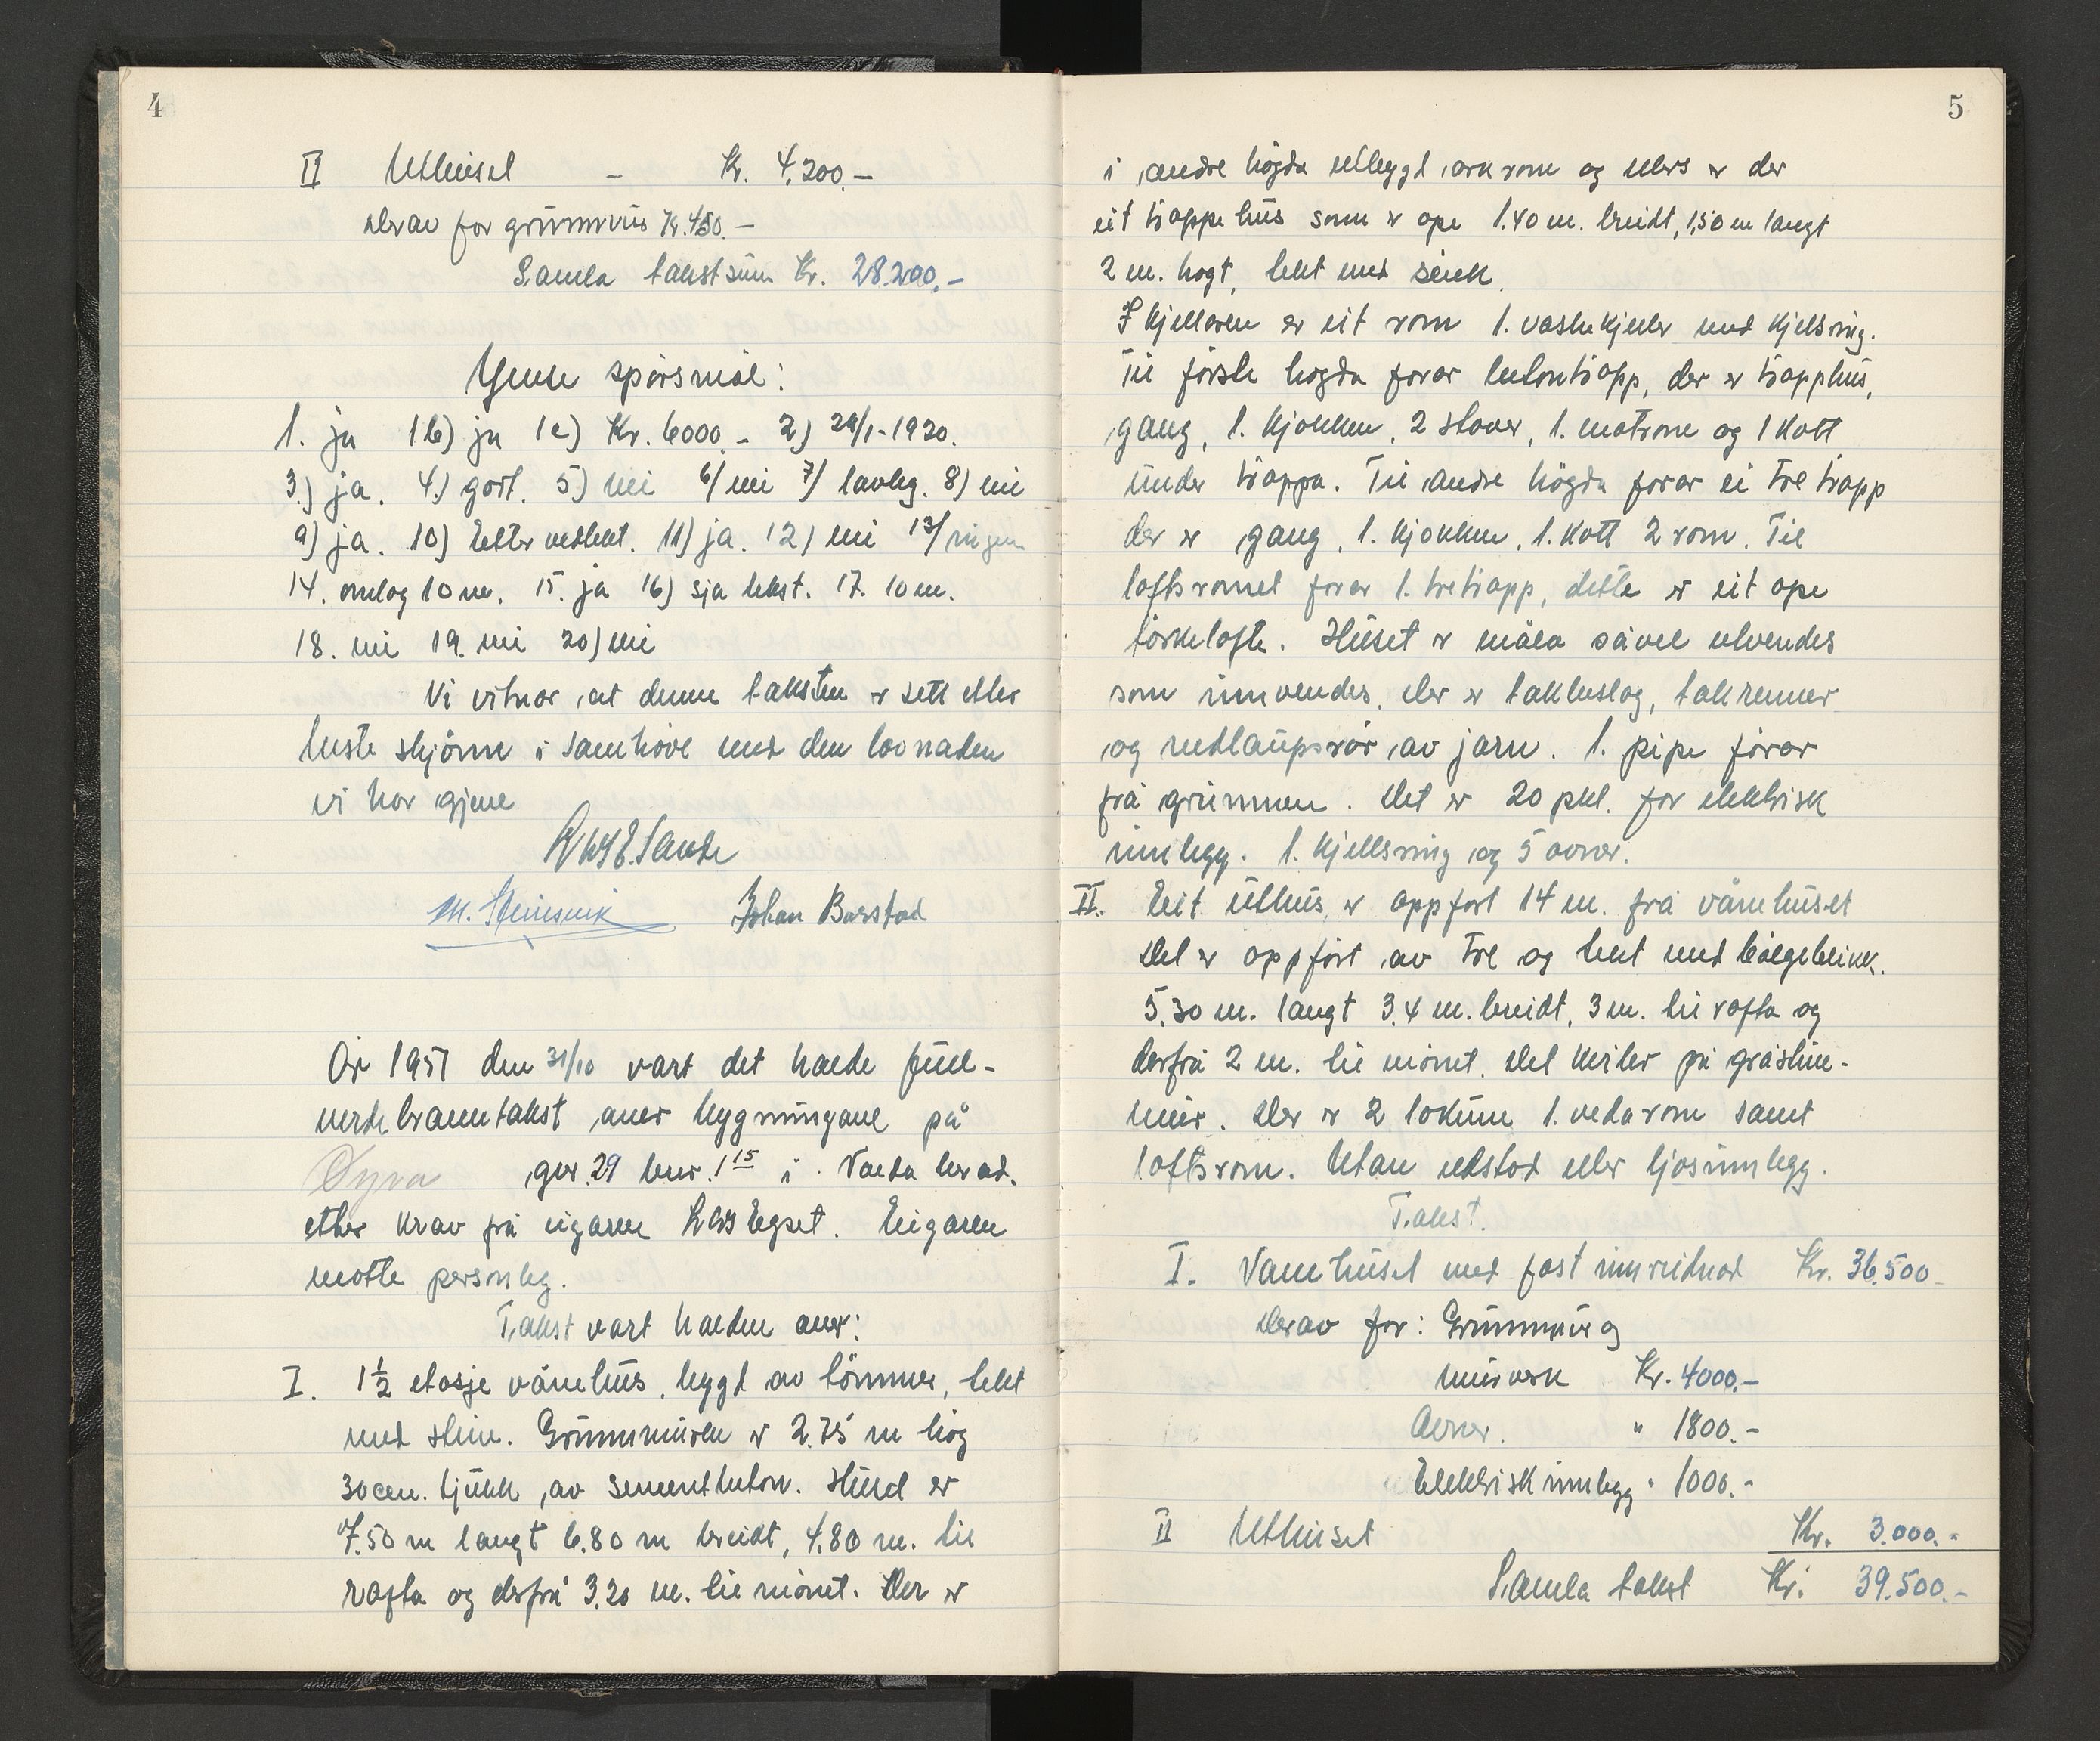 4
II Uthuset – Kr. 4.200.–
derav for grunnmur Kr. 450.–
Samla takstsum Kr. 28.200.–
Ymse spörsmål:
1. ja 1b) ja 1c) Kr. 6000.– 2) 29/1-1920.
3.) ja. 4.) gort. 5) nei 6/ nei 7/ lovleg. 8) nei
9) ja. 10) Etter vedtekt. 11) ja. 12) nei 13/ ingen
14. omlag 10 m. 15. ja 16) sja tekst. 17. 10 m.
18. nei 19. nei 20) nei
Vi vitnar at denne taksten er sett etter
beste skjönn i samhöve med den lovnaden
vi har gjeve
M. Steinsvik Johan Barstad
År 1951 den 31/10 vart det halde full-
verdebranntakst over bygningane på
gnr. 29 bnr. 115 i Volda herad.
etter krav frå eigaren Egset. Eigaren
motte personleg.
Takst vart halden over:
I. 1½ etasje vånehus, bygd av tömmer, tekt
med stein. Grunnmuren er 2.75 m hög
30 cm. tjukk, av sementbeton. Huset er
7.50 m langt 6.80 m breidt, 4.80 m. til
rafta og derfrå 3.20 m. til mönet. Der er
5
i andre högda utbygd ark rom og ellers er der
eit trappehus som er ope 1.40 m. breidt, 1,50 m langt
2 m. hogt, tekt med sink.
I kjellaren er eit rom 1. vaskekjeler med kjelsring.
Til förste hogda forar betontrapp, der er trapphus,
gang, 1. kjokken, 2 stover, 1. matrom og 1 kott
under trappa. Til andre högda forar ei tre trapp
der er gang, 1. kjokken, 1. kott 2 rom. Til
loftsromet forar 1. tretrapp, dette er eit ope
törkelofte. Huset er måla såvel utvendes
som innvendes, der er takbeslag, takrenner
og nedlaupsrör av jarn. 1. pipe förar
frå grunnen. Det er 20 pkt. for elektrisk
innlegg. 1. kjellsring og 5 ovnar.
II. Eit uthus er oppfort 14 m. frå vånehuset
Det er oppfört av tre og tekt med bölgeblikk.
5.30 m. langt 3.4 m. breidt, 3 m. til rafta og
derfrå 2 m. til mönet. Det kviler på gråstein-
mur. Der er 2 lokum 1. vedarom samt
loftsrom. Utan eldstad eller ljosinnlegg.
Takst.
I. Vånehuset med fast innreidnad Kr. 36.500–
Derav for: Grunnmur og
murverk Kr. 4000.–
Ovner. " 1800.–
Elektrisk innlegg " 1000.–
II Uthuset Kr. 3.000.–
Samla takst Kr. 39.500.–